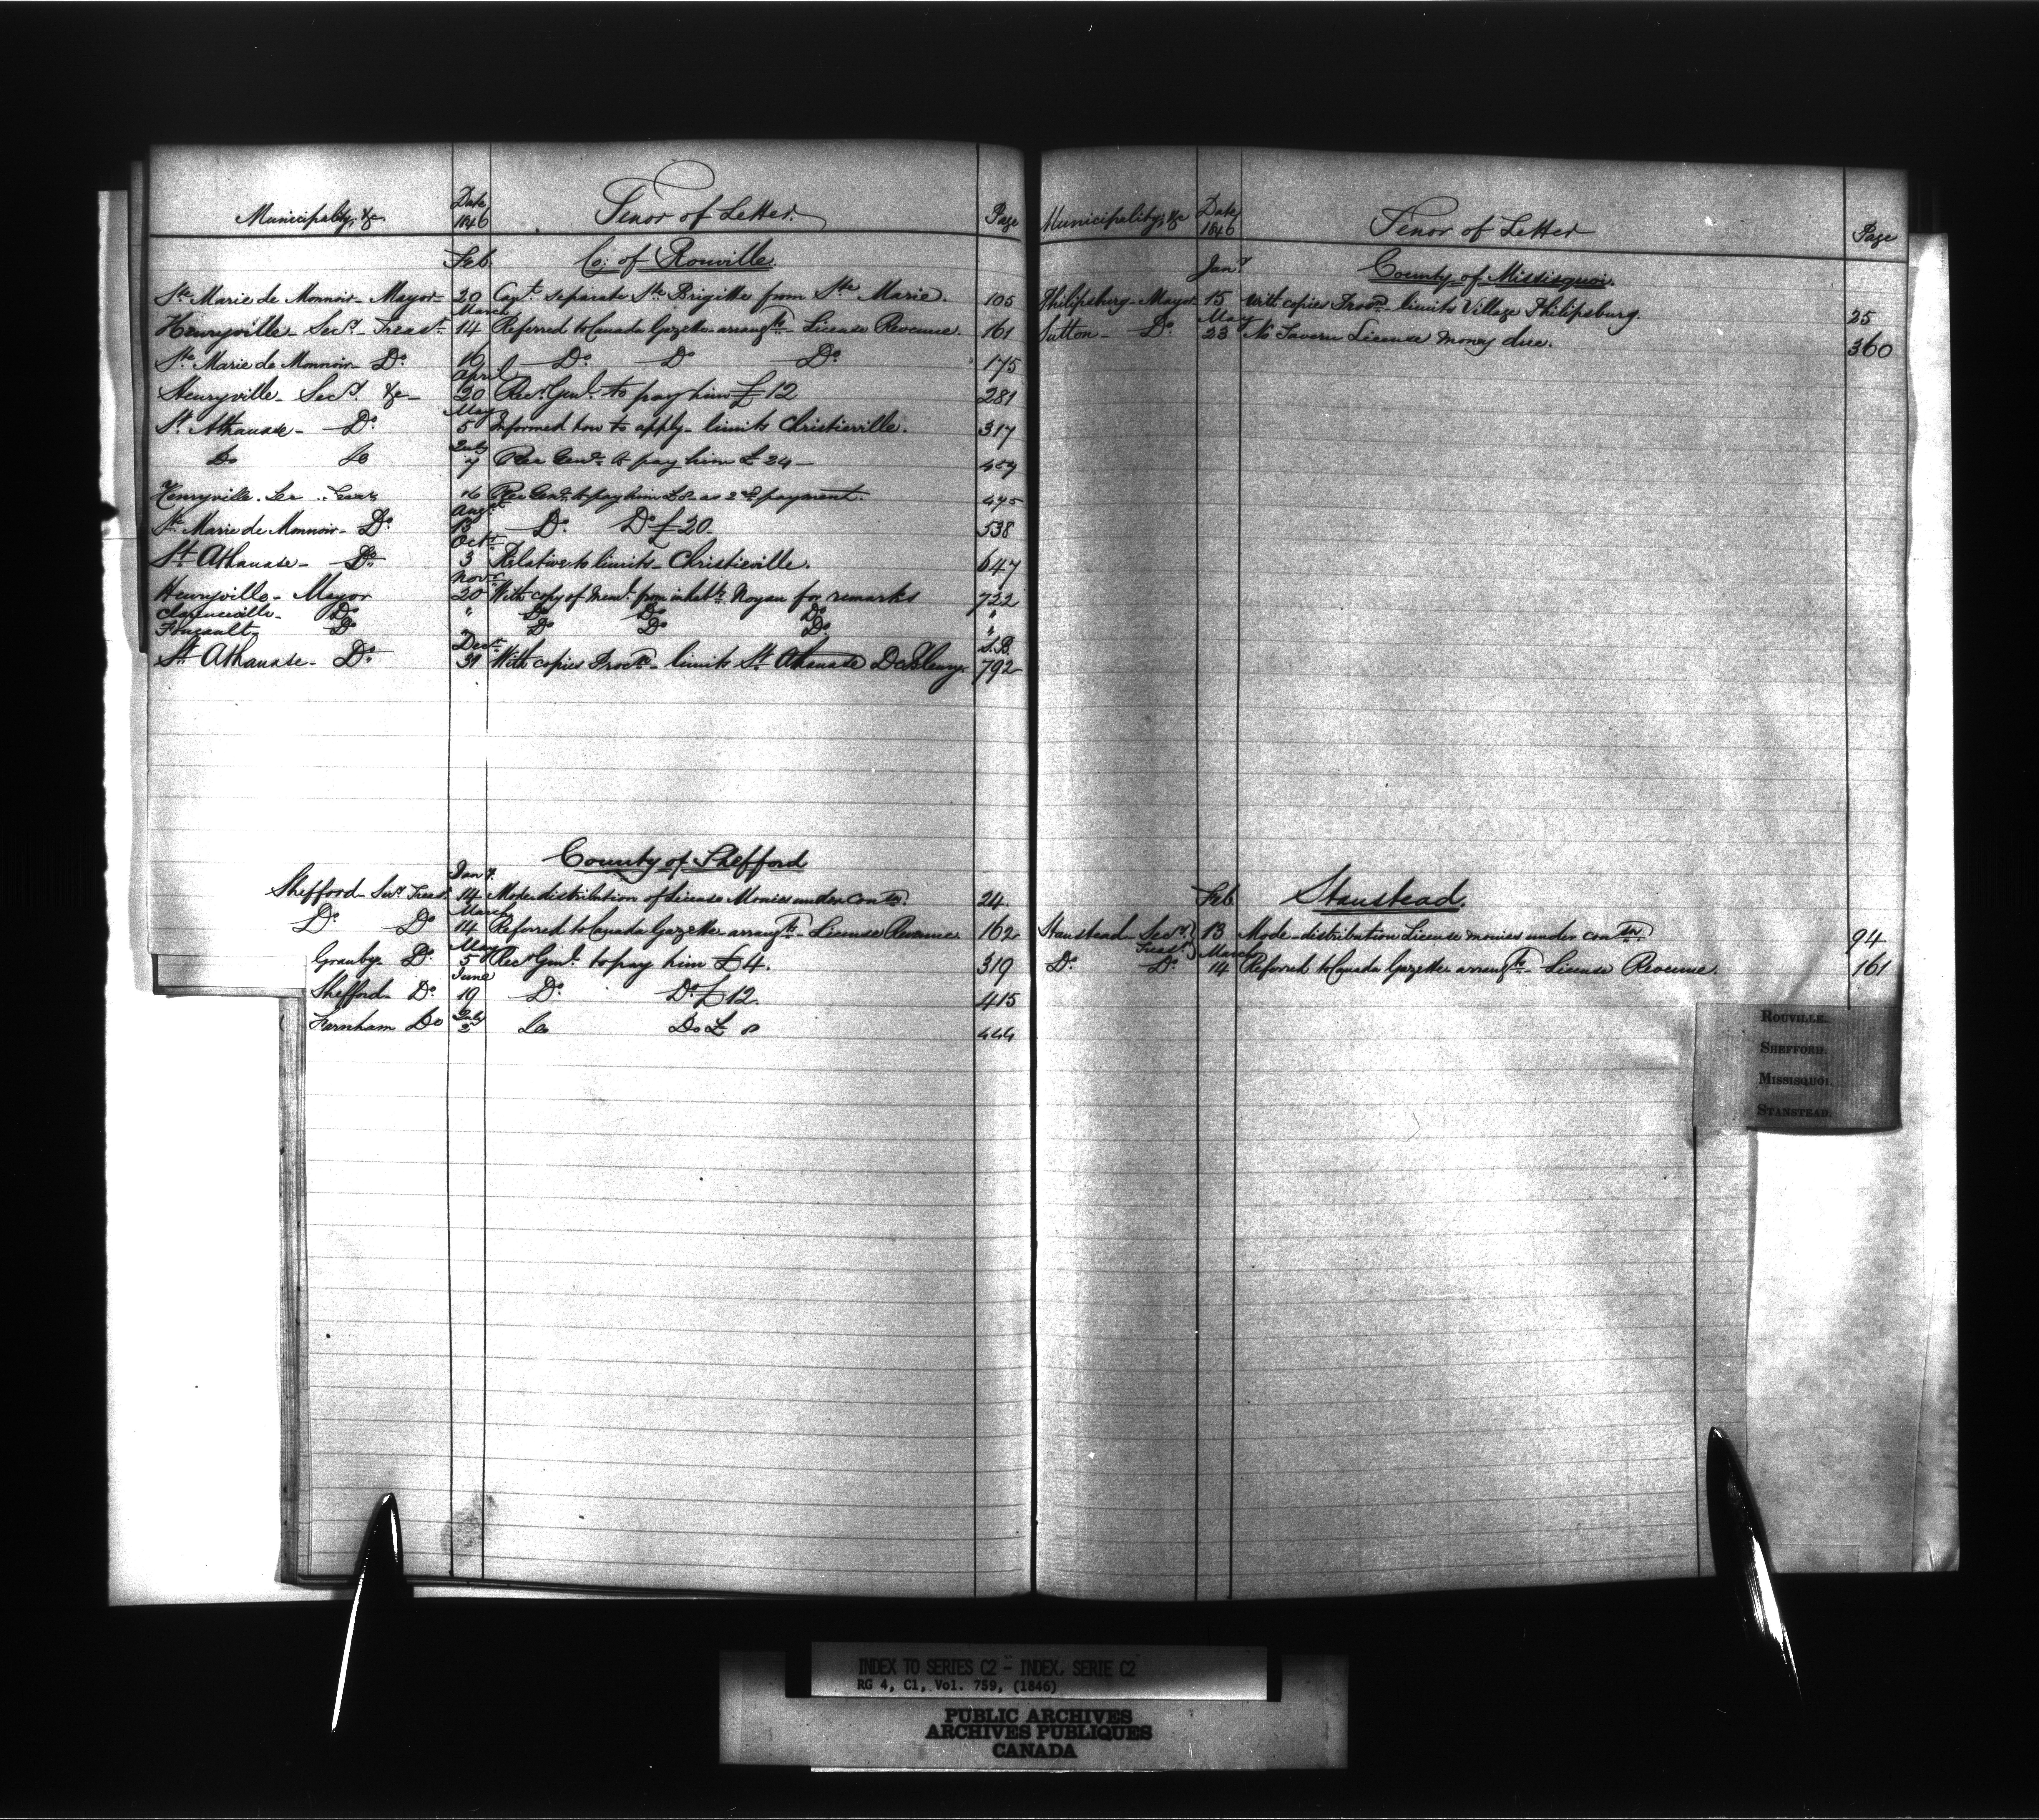 Municipality, &c. Date 1846 Tenor of Letter. Page
Feb. Co: of Rouville.
Ste Marie de Monnoir - Mayor - 20 Capt. separate Ste Brigitte from Ste Marie. 105
March
Henryville - Secy. Treasr. 14 Referred to Canada Gazette arrangts. - License Revenue. 161
Ste Marie de Monnoir - Do. 16 Do. Do Do. 175
April
Henryville - Secy. &c - 20 Recr. Genl. to pay him £12 281
May
St. Athanase - Do. 5 Informed how to apply - limits Christieville. 317
July
Do Do 7 Rec Genl. to pay him £ 24 -
Henryville. 16 Rec Genl. to pay him £8 - as 2nd payment. 475
Augt.
Ste Marie de Monnoir - Do. 13 Do. Do £ 20. 538
Octr.
St. Athanase - Do. 3 Relative to limits - Christieville. 647
Novr.
Henryville - Mayor 20 With copy of Meml. from inhabts. Noyan for remarks 722
Clarenceville - Do. " Do Do Do "
Foucault Do " Do Do Do. "
Decr. L.B.
St. Athanase - Do. 31 With copies Procn. - limits St. Athanase 792
County of Shefford
Jany.
Shefford - Secy. Treasr. 14 Mode distribution of License Monies under con 24.
March
Do. Do 14 Referred to Canada Gazette arrangts. - License Revenue 162
May
Granby Do. 5 Recr Genl. to pay him £4. 319
June
Shefford - Do. 19 Do. Do. £12. 415
July
Farnham Do 2 Do Do £ 8 444
Municipality, &c Date 1846 Tenor of Letter Page
Jany. County of Missisquoi.
Philipsburg - Mayor 15 With copies Procn. - limits Village Philipsburg. 25
May
Sutton - Do. 23 No Tavern License money due. 360
Feb. Stanstead.
Stanstead - Secy. Treasr. 13 Mode - distribution License monies under con 94
March
Do. Do. 14 Referred to Canada Gazette arrangts. - License Revenue. 161
ROUVILLE.
SHEFFORD.
MISSISQUOI.
STANSTEAD.
INDEX TO SERIES C2 - INDEX, SERIE C2
RG 4, C1, Vol. 759, (1846)
PUBLIC ARCHIVES
ARCHIVES PUBLIQUES
CANADA